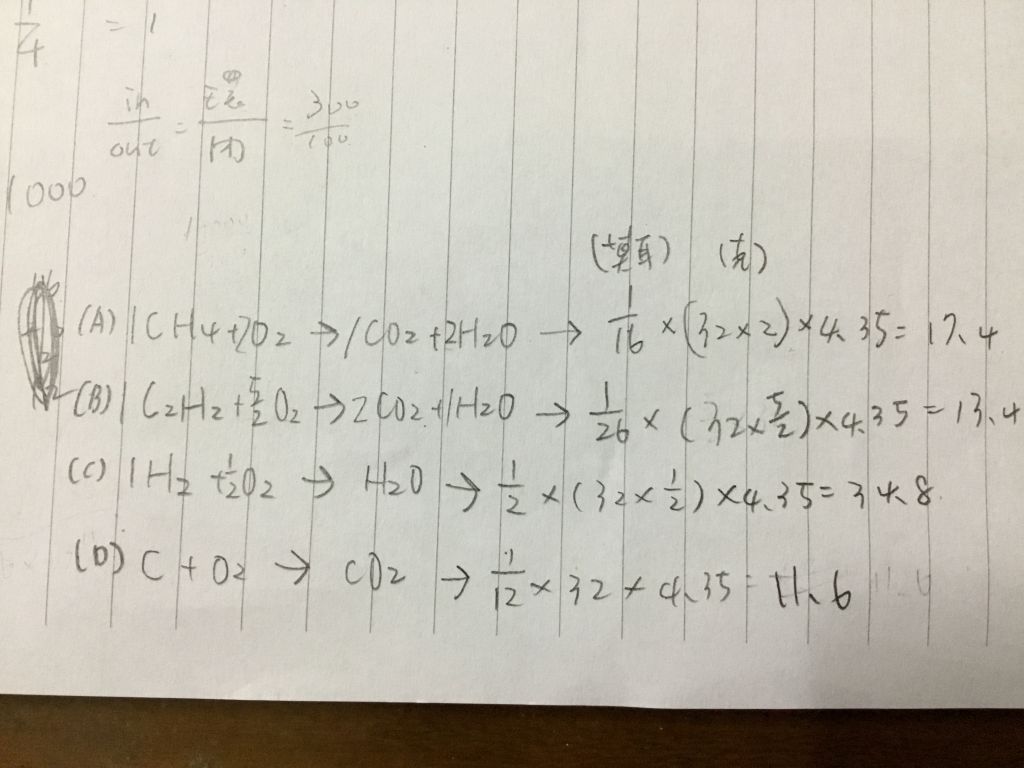 1/4 = 1
in/out = 環/開 = 300/100
1000
(莫耳) (克)
(A) 1CH4+2O2 → 1CO2+2H2O → 1/16 × (32×2) × 4.35 = 17.4
(B) 1C2H2+5/2O2 → 2CO2+1H2O → 1/26 × (32×5/2) × 4.35 = 13.4
(C) 1H2 + 1/2O2 → H2O → 1/2 × (32×1/2) × 4.35 = 34.8
(D) C + O2 → CO2 → 1/12 × 32 × 4.35 = 11.6